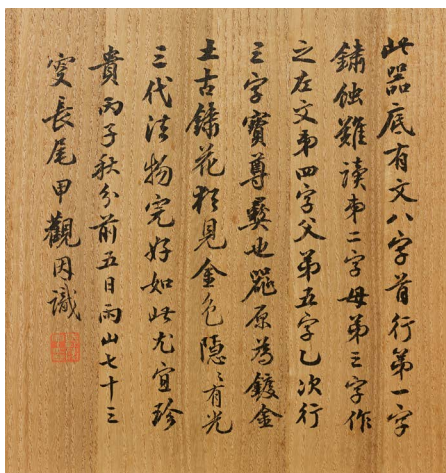 此器底有文八字首行第一字
鏽蝕難讀第二字母第三字作
之左文第四字父第五字乙次行
三字寶尊彝也器原為鍍金
土古綠花猶見金色隱〻有光
三代法物完好如此尤宜珍
貴丙子秋分前五日雨山七十三
叟長尾甲觀因識